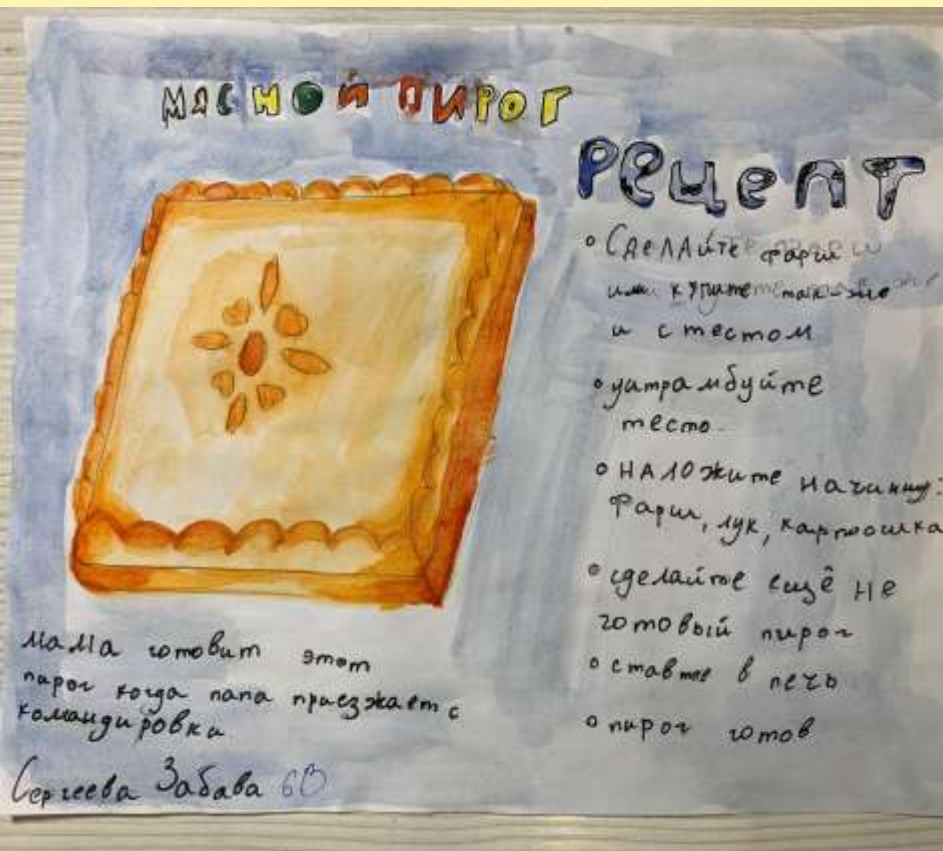 МЯСНОЙ ПИРОГ
РЕЦЕПТ
• СДЕЛАЙТЕ фарш
или купите так-же
и с тестом
• утрамбуйте
тесто.
• НАЛОжите начинку.
Фарш, лук, картошка
• сделайте ещё не
готовый пирог
• ставте в печь
• пирог готов
мама готовит этот
пирог когда папа приезжает с
командировка
Сергеева Забава 6В